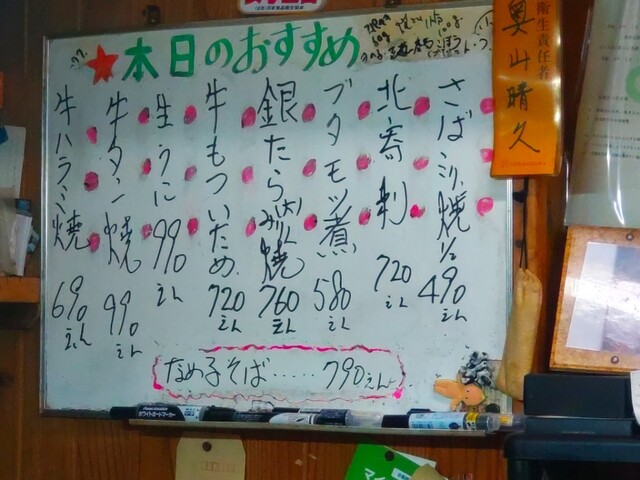 本日のおすすめ
さばミリン焼 1/2 490えん
北寄刺 720えん
ブタモツ煮 580えん
銀たら(大)みりん焼 760えん
牛もついため 720えん
生うに 990えん
牛タン焼 990えん
牛ハラミ焼 690えん
なめ子そば……790えん
衛生責任者
奥山晴久
ホワイトボードマーカー